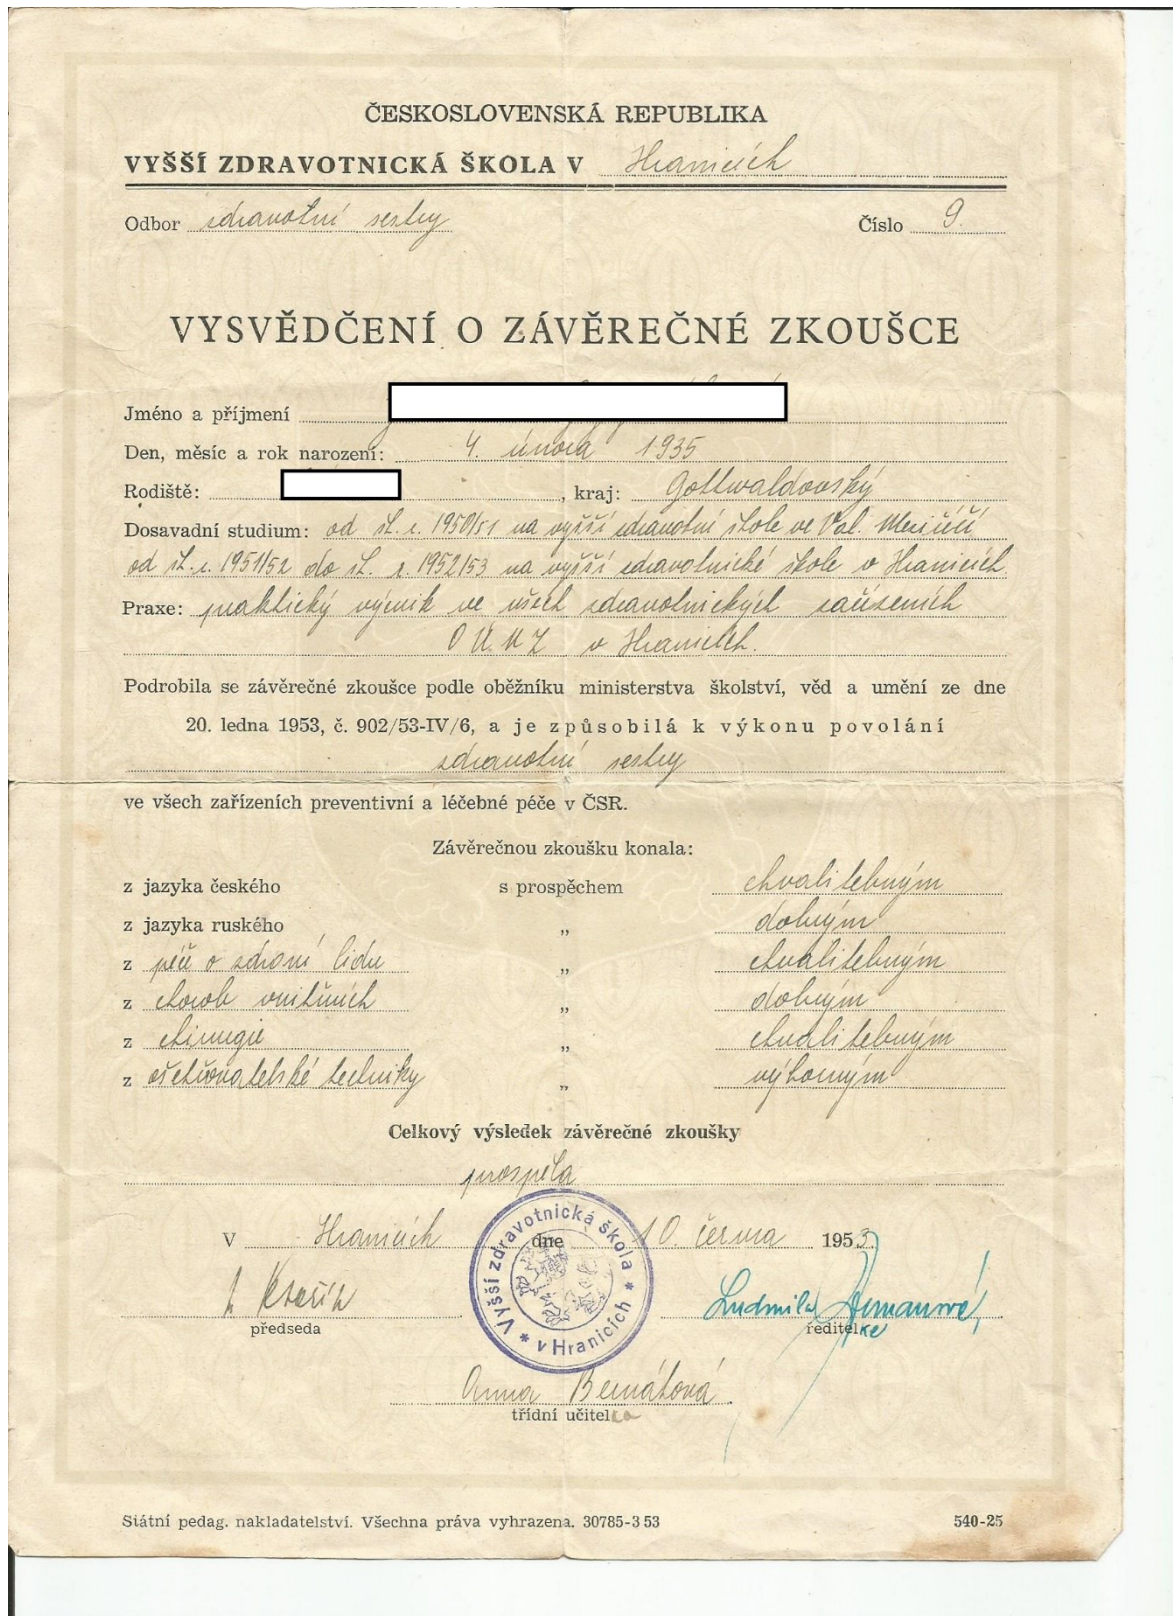 ČESKOSLOVENSKÁ REPUBLIKA
VYŠŠÍ ZDRAVOTNICKÁ ŠKOLA V Hranicích
Odbor zdravotní sestry Číslo 9.
VYSVĚDČENÍ O ZÁVĚREČNÉ ZKOUŠCE
Jméno a příjmení
Den, měsíc a rok narození: 4. února 1935
Rodiště: , kraj: Gottwaldovský
Dosavadní studium: od šk. r. 1950/51 na vyšší zdravotní škole ve Val. Meziříčí
od šk. r. 1951/52 do šk. r. 1952/53 na vyšší zdravotnické škole v Hranicích.
Praxe: praktický výcvik ve všech zdravotnických zařízeních
O Ú. N Z v Hranicích.
Podrobila se závěrečné zkoušce podle oběžníku ministerstva školství, věd a umění ze dne
20. ledna 1953, č. 902/53-IV/6, a je způsobilá k výkonu povolání
zdravotní sestry
ve všech zařízeních preventivní a léčebné péče v ČSR.
Závěrečnou zkoušku konala:
z jazyka českého s prospěchem chvalitebným
z jazyka ruského „ dobrým
z péče o zdraví lidu „ chvalitebným
z chorob vnitřních „ dobrým
z chirurgie „ chvalitebným
z ošetřovatelské techniky „ výborným
Celkový výsledek závěrečné zkoušky
prospěla
V Hranicích dne 10. června 1953
Vyšší zdravotnická škola * v Hranicích *
Ludmila
předseda ředitelké
Anna Bernátová
třídní učitelca
Státní pedag. nakladatelství. Všechna práva vyhrazena. 30785-3 53 540-25